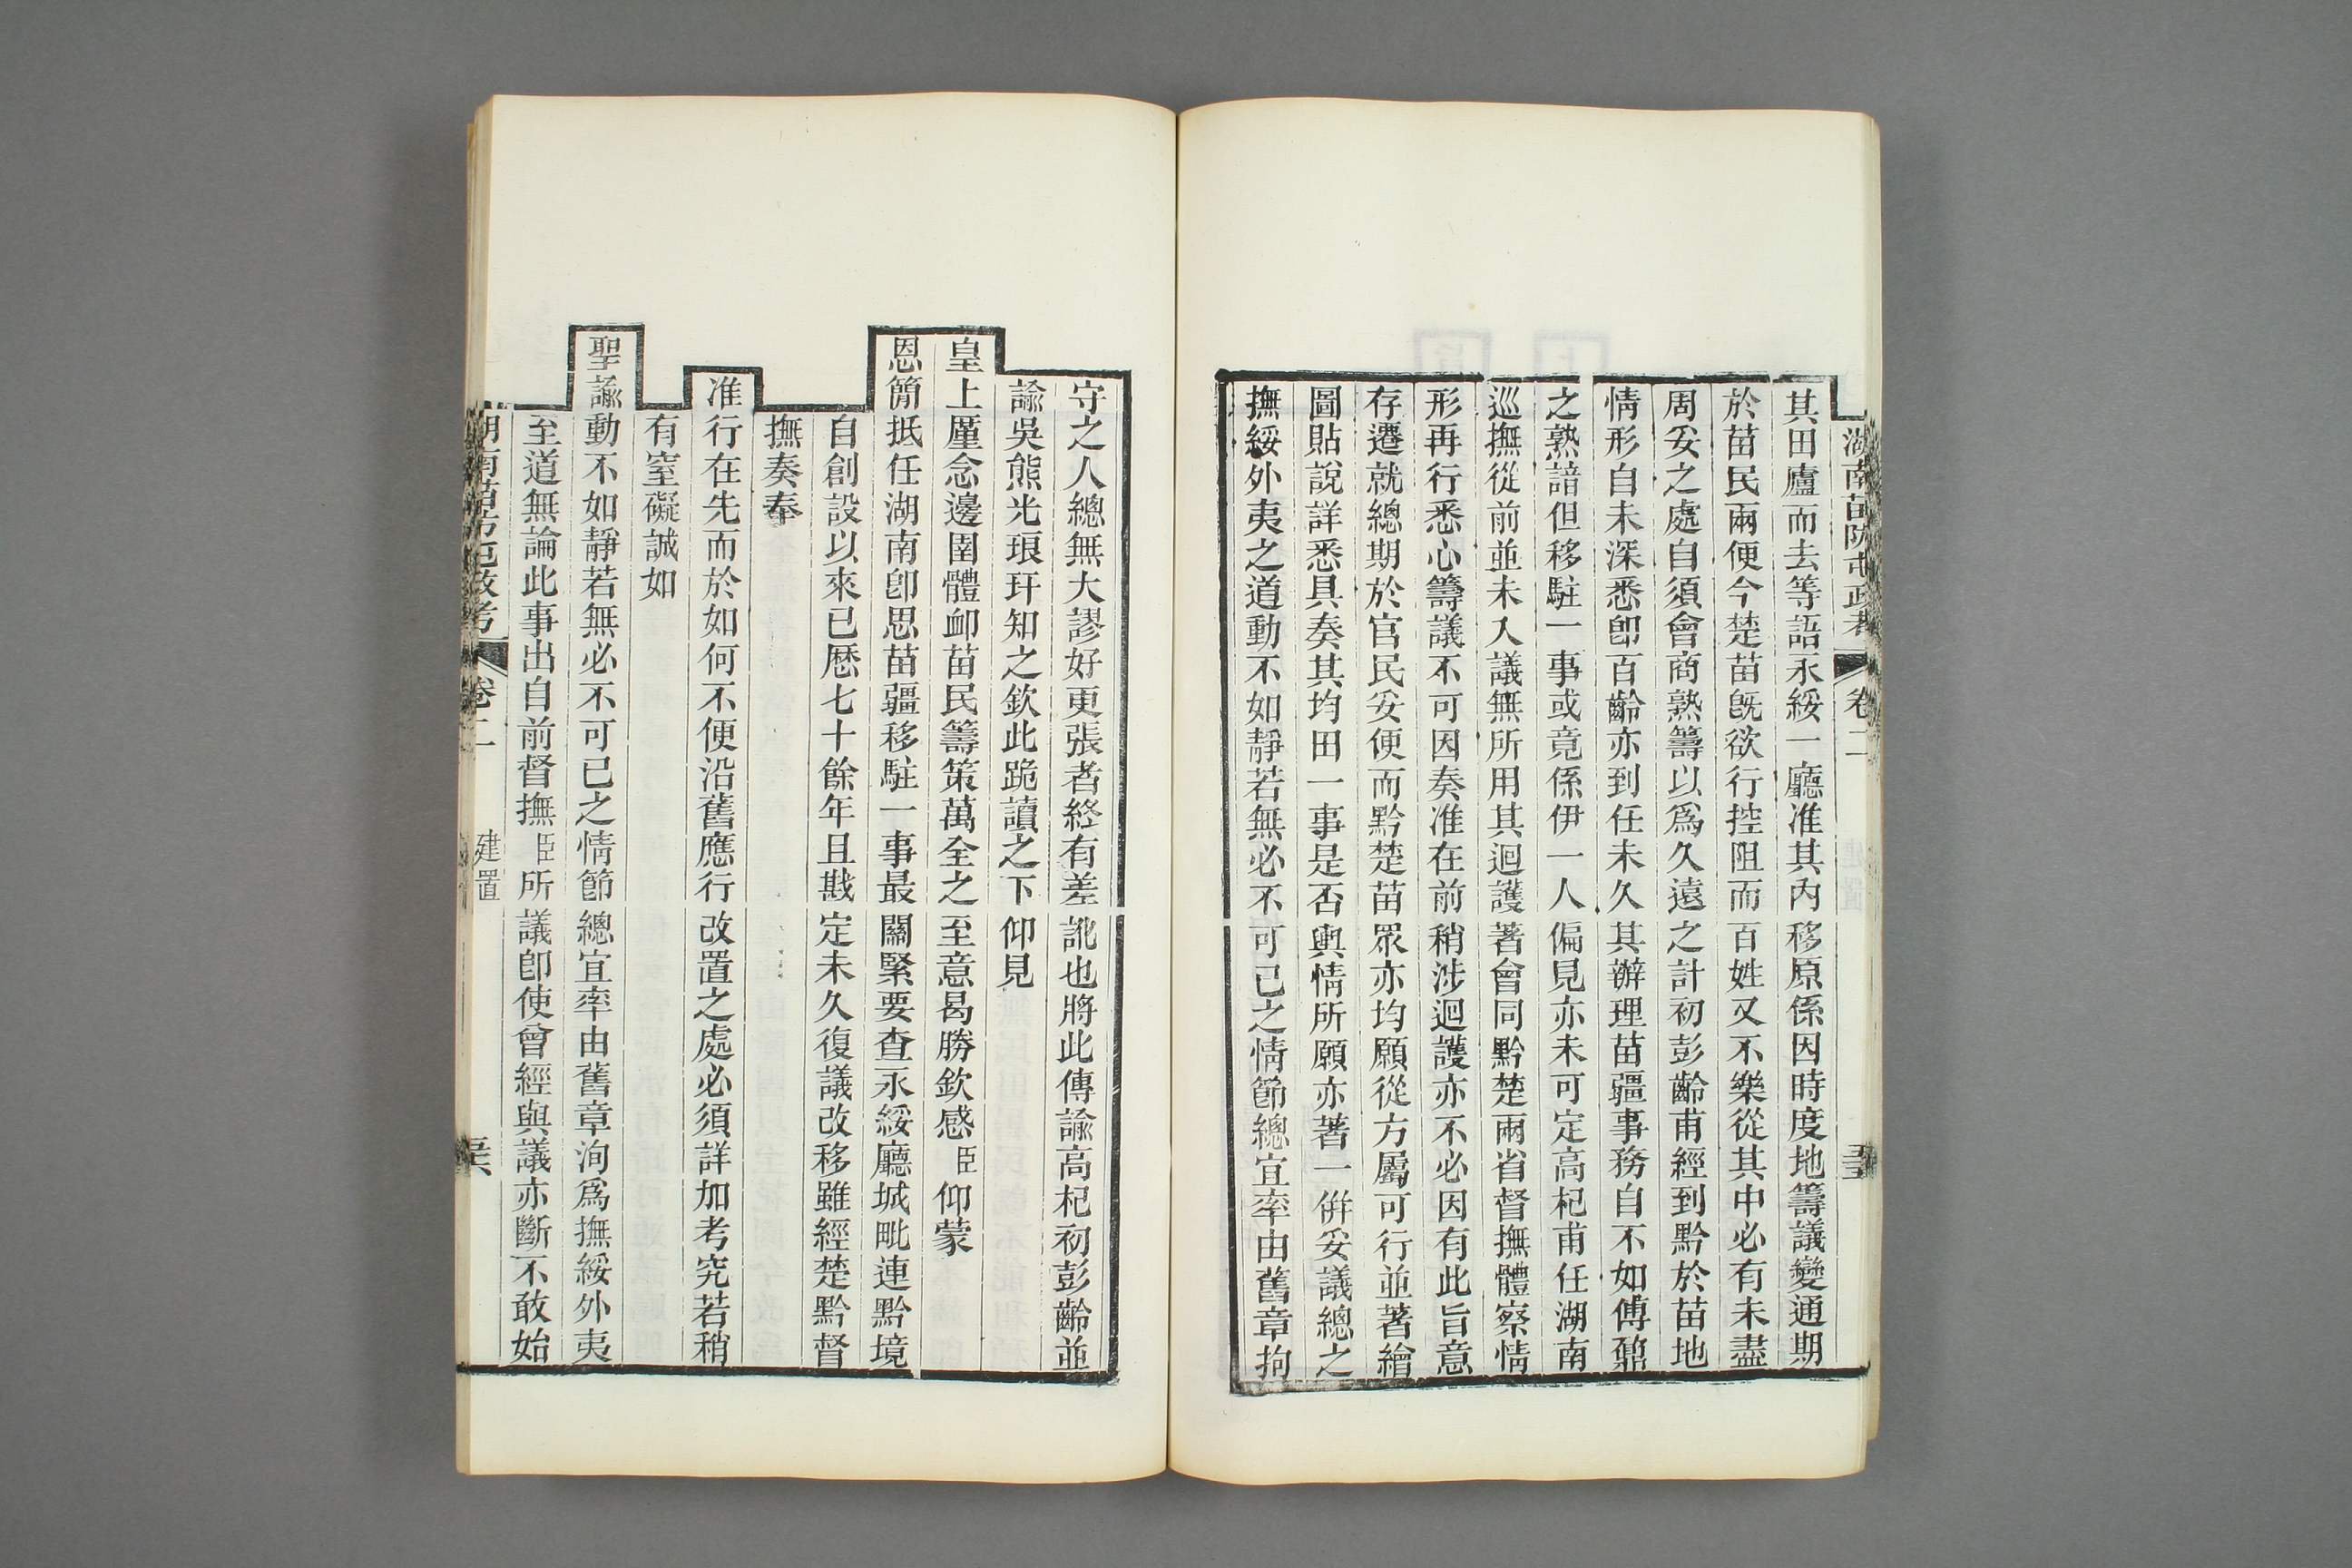 湖南苗防屯政考 卷二
其田廬而去等語永綏一廳准其內移原係因時度地籌議變通期
於苗民兩便今楚苗旣欲行控阻而百姓又不樂從其中必有未盡
周妥之處自須會商熟籌以爲久遠之計初彭齡甫經到黔於苗地
情形自未深悉卽百齡亦到任未久其辦理苗疆事務自不如傅鼐
之熟諳但移駐一事或竟係伊一人偏見亦未可定高杞甫任湖南
巡撫從前並未入議無所用其迴護著會同黔楚兩省督撫體察情
形再行悉心籌議不可因奏准在前稍涉迴護亦不必因有此旨意
存遷就總期於官民妥便而黔楚苗眾亦均願從方屬可行並著繪
圖貼說詳悉具奏其均田一事是否輿情所願亦著一併妥議總之
撫綏外夷之道動不如靜若無必不可已之情節總宜率由舊章拘
守之人總無大謬好更張者終有差訛也將此傳諭高杞初彭齡並
諭吳熊光琅玕知之欽此跪讀之下仰見
皇上厪念邊圉體卹苗民籌策萬全之至意曷勝欽感臣仰蒙
恩簡抵任湖南卽思苗疆移駐一事最關緊要查永綏廳城毗連黔境
自創設以來已歷七十餘年且戡定未久復議改移雖經楚黔督
撫奏奉
准行在先而於如何不便沿舊應行改置之處必須詳加考究若稍
有窒礙誠如
聖諭動不如靜若無必不可已之情節總宜率由舊章洵爲撫綏外夷
至道無論此事出自前督撫臣所議卽使曾經與議亦斷不敢始
湖南苗防屯政考 卷二 建置